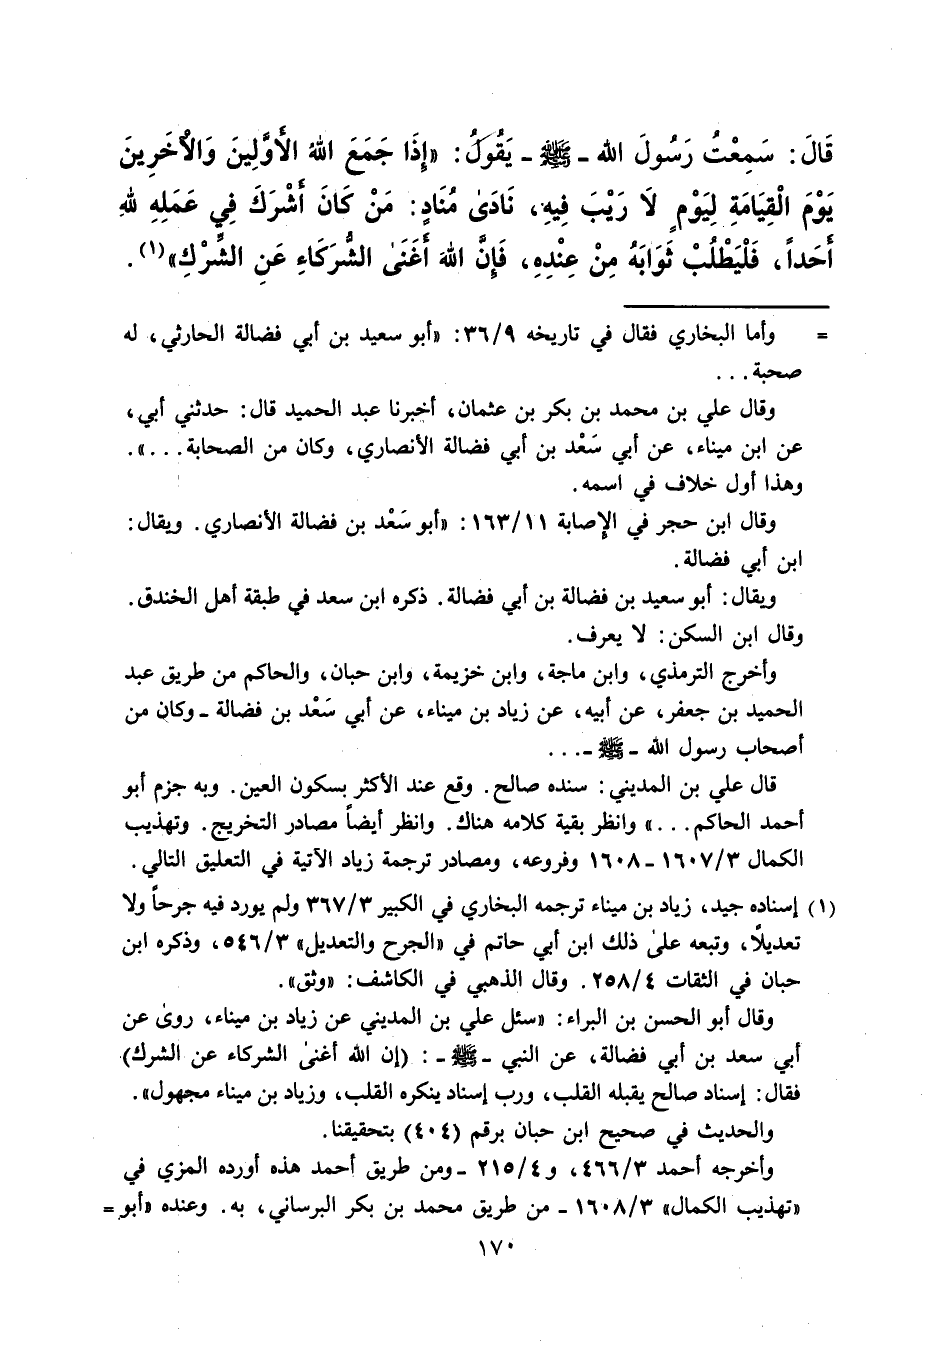 قَالَ: سَمِعْتُ رَسُولَ الله ـ ﷺ ـ يَقُولُ: «إِذَا جَمَعَ اللهُ الأَوَّلِينَ وَالْآخَرِينَ
يَوْمَ الْقِيَامَةِ لِيَوْمٍ لَا رَيْبَ فِيهِ، نَادَىٰ مُنَادٍ: مَنْ كَانَ أَشْرَكَ فِي عَمَلِهِ لِلهِ
أَحَداً، فَلْيَطْلُبْ ثَوَابَهُ مِنْ عِنْدِهِ، فَإِنَّ اللهَ أَغْنَىٰ الشُّرَكَاءِ عَنِ الشِّرْكِ»(١).
= وأما البخاري فقال في تاريخه ٣٦/٩: «أبو سعيد بن أبي فضالة الحارثي، له
صحبة...
وقال علي بن محمد بن بكر بن عثمان، أخبرنا عبد الحميد قال: حدثني أبي،
عن ابن ميناء، عن أبي سَعْد بن أبي فضالة الأنصاري، وكان من الصحابة...».
وهذا أول خلاف في اسمه.
وقال ابن حجر في الإصابة ١٦٣/١١: «أبو سَعْد بن فضالة الأنصاري. ويقال:
ابن أبي فضالة.
ويقال: أبو سعيد بن فضالة بن أبي فضالة. ذكره ابن سعد في طبقة أهل الخندق.
وقال ابن السكن: لا يعرف.
وأخرج الترمذي، وابن ماجة، وابن خزيمة، وابن حبان، والحاكم من طريق عبد
الحميد بن جعفر، عن أبيه، عن زياد بن ميناء، عن أبي سَعْد بن فضالة ـ وكان من
أصحاب رسول الله ـ ﷺ ـ...
قال علي بن المديني: سنده صالح. وقع عند الأكثر بسكون العين. وبه جزم أبو
أحمد الحاكم...» وانظر بقية كلامه هناك. وانظر أيضاً مصادر التخريج. وتهذيب
الكمال ١٦٠٧/٣ ـ ١٦٠٨ وفروعه، ومصادر ترجمة زياد الآتية في التعليق التالي.
(١) إسناده جيد، زياد بن ميناء ترجمه البخاري في الكبير ٣٦٧/٣ ولم يورد فيه جرحاً ولا
تعديلاً، وتبعه علىٰ ذلك ابن أبي حاتم في «الجرح والتعديل» ٥٤٦/٣، وذكره ابن
حبان في الثقات ٢٥٨/٤. وقال الذهبي في الكاشف: «وثق».
وقال أبو الحسن بن البراء: «سئل علي بن المديني عن زياد بن ميناء، روىٰ عن
أبي سعد بن أبي فضالة، عن النبي ـ ﷺ ـ: (إن الله أغنىٰ الشركاء عن الشرك)
فقال: إسناد صالح يقبله القلب، ورب إسناد ينكره القلب، وزياد بن ميناء مجهول».
والحديث في صحيح ابن حبان برقم (٤٠٤) بتحقيقنا.
وأخرجه أحمد ٤٦٦/٣، و ٢١٥/٤ ـ ومن طريق أحمد هذه أورده المزي في
«تهذيب الكمال» ١٦٠٨/٣ ـ من طريق محمد بن بكر البرساني، به. وعنده «أبو =
١٧٠